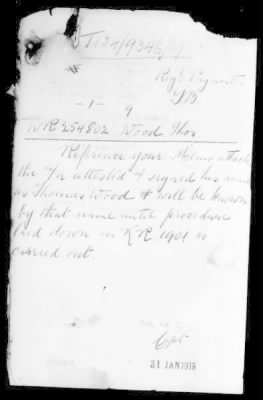 T134/9346/
Regt Paymaster
- 1 - 9
WR 254802 Wood Thos
Reference your Memo attached
the m/n attested & signed his name
as Thomas Wood & will be known
by that name until procedure
laid down in K.R. 1901 is
carried out.
Capt
31 JAN 1919